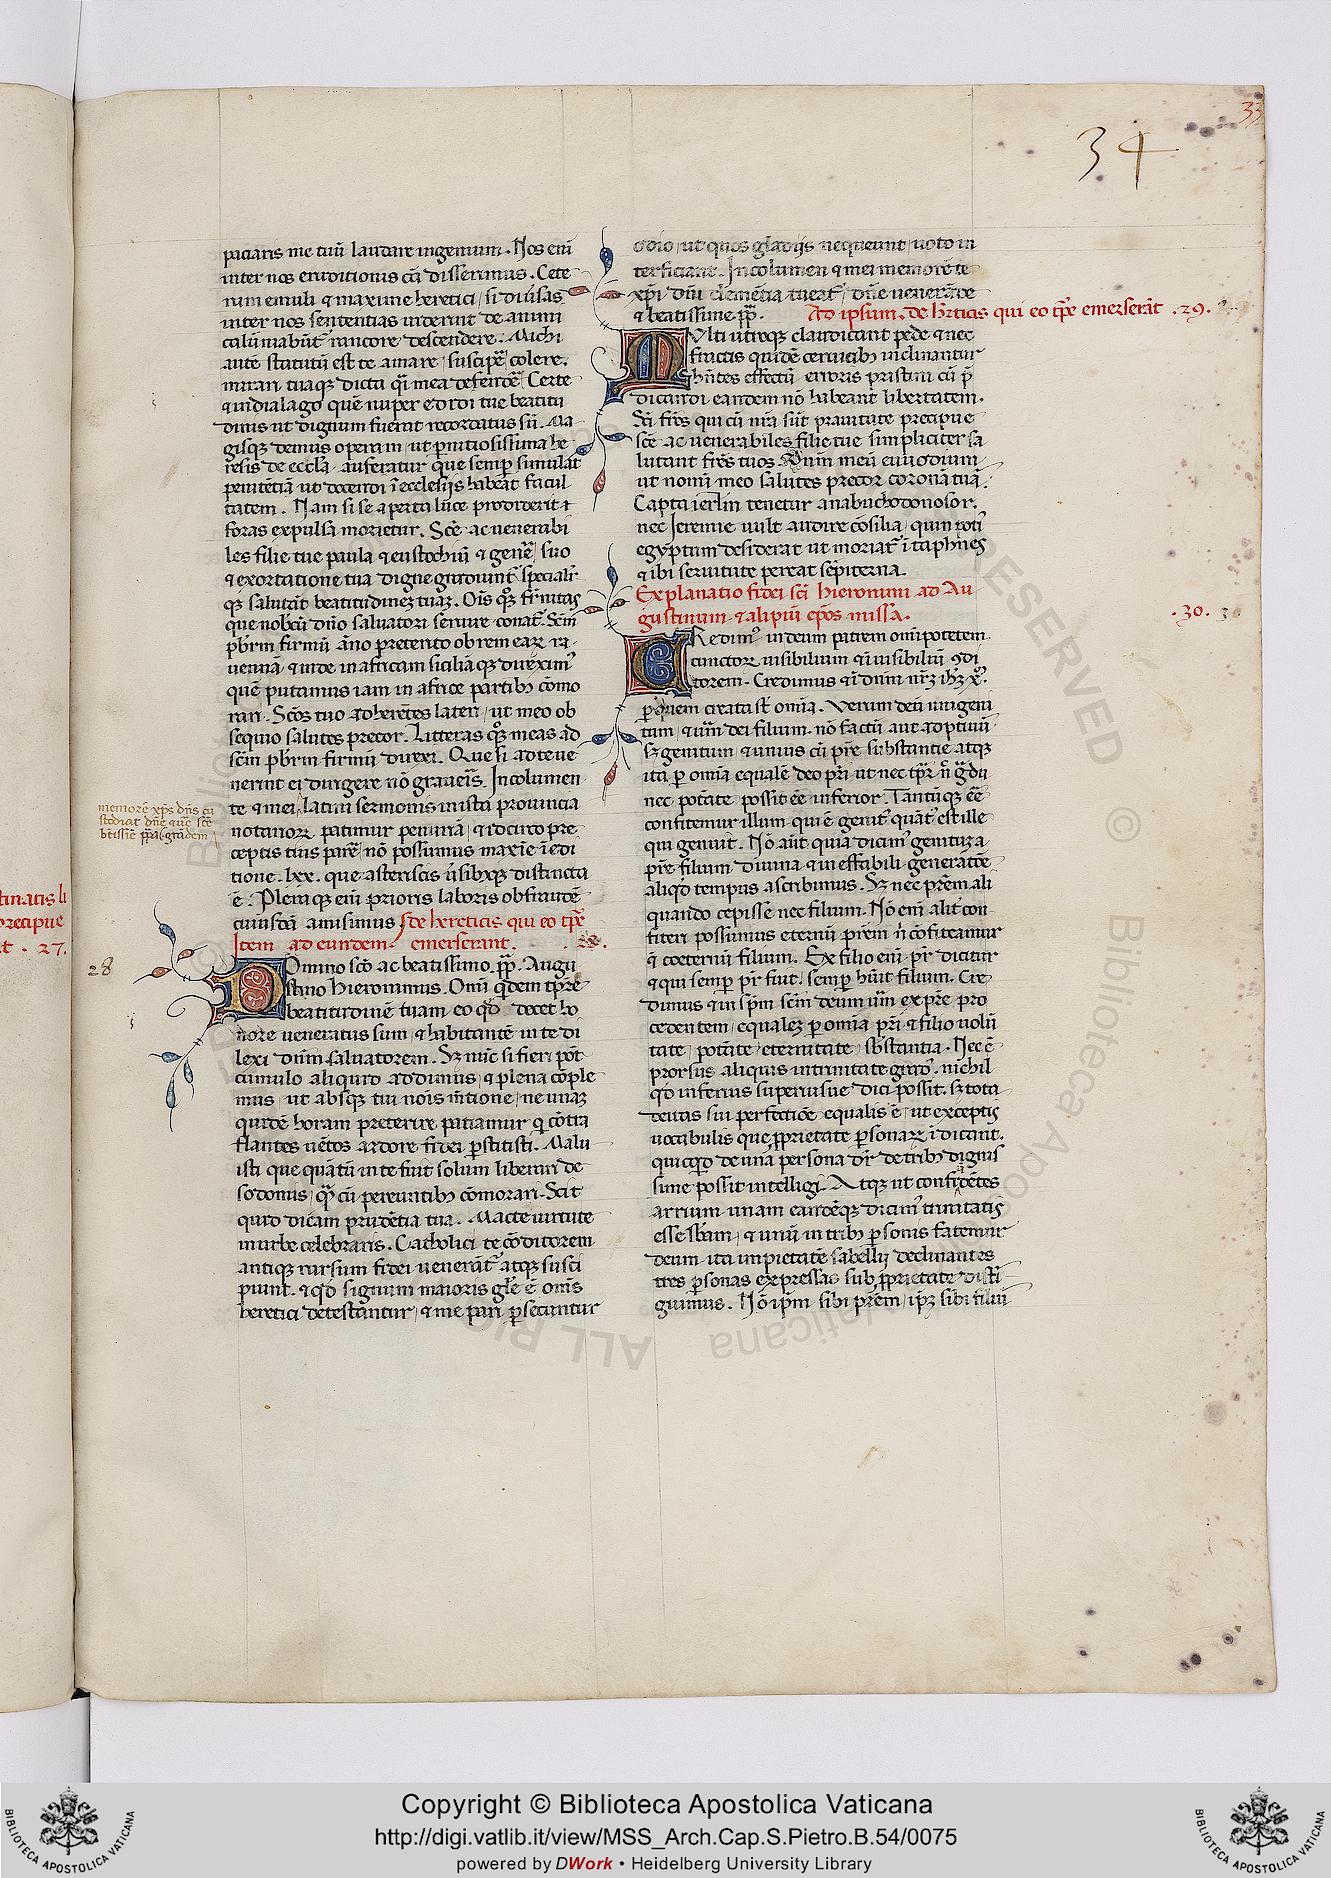 33
34
paciaris me tuū laudare ingenium. Nos eni
inter nos eruditionis cā disserimus. Cete
rum emuli & maxime heretici, si diūsas
inter nos sententias uiderint de animi
calūniabūt rancore descendere. Michi
autē statutū est te amare, suscipe colere,
mirari tuaq dicta qī mea defendē. Certe
& in dialago quē nuper edidi tue beatitu
dinis ut dignum fuerat recordatus sū. Ma
gisq demus operam ut pnitiosissima he
resis de ecclīa auferatur que semp simulat
penitētiā ut docendi ī ecclesijs habeāt facul
tatem. Nam si se aperta luce prodiderit
foras expulsa morietur. Scē ac uenerabi
les filie tue paula & eustochiū & genē suo
& exortatione tua digne gradiunt specialr
q salutāt beatitudinez tuaz. Ois q fritas
que nobcū dno saluatori seruire conat. Scm
pbrm firmū āno preterito ob rem eaz ra
uennā & inde in africam siciliāq direxim
quē putamus iam in africe partib cōmo
rari. Scos tuo adherētes lateri, ut meo ob
sequio salutes precor. Litteras q meas ad
scm pbrm firmū direxi. Que si ad te ue
nerint ei dirigere nō graueris. Incolumen
te & mei latini sermonis in ista prouincia
notarioz patimur penuriā, & idcirco pre
ceptis tuis parē nō possumus maxīe ī edi
tione .lxx. que asteriscis ūsibzq distincta
ē. Pleraq eni prioris laboris ob fraudē
cuiusdā amisimus
memorē xps dns cu
stodiat dne uē scē
btissiē ppa
de hereticis qui eo tpe
Item ad eundem. emerserant. .28.
28
Domino sco ac beatissimo pp. Augu
stino hieronimus. Omi qdem tpre
beatitudinē tuam eo qd decet ho
nore ueneratus sum & habitantē in te di
lexi dnm saluatorem. Sz nūc si fieri pōt
cumulo aliquid addimus, & plena cōple
mus ut absq tui nois mtione, ne unaz
quidē horam preterire patiamur q cōtra
flantes uētos ardore fidei pstitisti. Malu
isti que quātū in te fuit solum liberari de
sodomis, q cū pereuntib cōmorari. Scit
quid dicam prudētia tua. Macte uirtute
in urbe celebraris. Catholici te cōditorem
antiq rursum fidei uenerāt atq susci
piunt. & qd signum maioris glē ē omēs
heretici detestantur, & me pari psecuntur
odio, ut quos gladijs nequeunt, uoto in
terficiant. Incolumen & mei memorē te
xpi dni clemētia tueat, dne uenerāde
& beatissime pp.
Ad ipsum. de hrticis qui eo tpe emerserāt .29.
Multi utroq claudicant pede & nec
fractis quidē ceruicib inclinantur
hntes effectū erroris pristini cū p
dicandi eandem nō habeant libertatem.
Sci frēs qui cū nra sūt prauitate precipue
scē ac uenerabiles filie tue simpliciter sa
lutant. frēs tuos. Dnm meū euuodium
ut nomi meo salutes precor coronā tuā.
Capta ierlm tenetur a nabuchodonosor,
nec Jeremie uult audire cōsilia, quin poti
egyptum desiderat ut moriat ī taphnes
& ibi seruitute pereat sēpiterna.
Explanatio fidei sci hieronimi ad Au
gustinum & alipiū epos missa.
.30.
Credim in deum patrem omipotētem
cunctoz uisibilium & inuisibiliū cdi
torem. Credimus & ī dnm nrz ihz x.
p quem creata st omia. Verum deū unigeni
tum, & uērm dei filium. nō factū aut adoptiuū
sz genitum & unius cū pre substantie atq
ita p omia equalē deo pri ut nec tpr n gradu
nec potate possit eē inferior. Tantūq eē
confitemur illum qui ē genit quāt est ille
qui genuit. Nō aūt quia dicim genituz a
pre filium diuina & ineffabili generatōe
aliqd tempus ascribimus. Sz nec prēm ali
quando cepisse nec filium. Nō eni alit con
fiteri possumus eternū prēm n cōfiteamur
& coeternū filium. Ex filio eni pr dicitur
& qui semp pr fuit, semp huit filium. Cre
dimus & in spm scm deum uīm ex pre pro
cedentem, equalez p omia pri & filio uolū
tate, potate, eternitate, sbstantia. Nec ē
prorsus aliquis in trinitate grad. nichil
qd inferius superiusue dici possit. sz tota
deitas sui perfectiōe equalis ē, ut exceptis
uocabulis que pprietate psonaz īdicant.
quicqd de una persona dr de trib dignis
sime possit intelligi. Atq ut confidētes
arrium unam eandēq dicim trinitatis
esse sbam, & unū in trib psonis fatemur
deum ita impietatē sabellij declinantes
tres psonas expressas sub pprietate disti
guimus. Nō ipm sibi prēm, ipz sibi filiū
tinatis li
precipue
t . 27.
Copyright © Biblioteca Apostolica Vaticana
http://digi.vatlib.it/view/MSS_Arch.Cap.S.Pietro.B.54/0075
powered by DWork • Heidelberg University Library
BIBLIOTECA APOSTOLICA VATICANA
BIBLIOTECA APOSTOLICA VATICANA